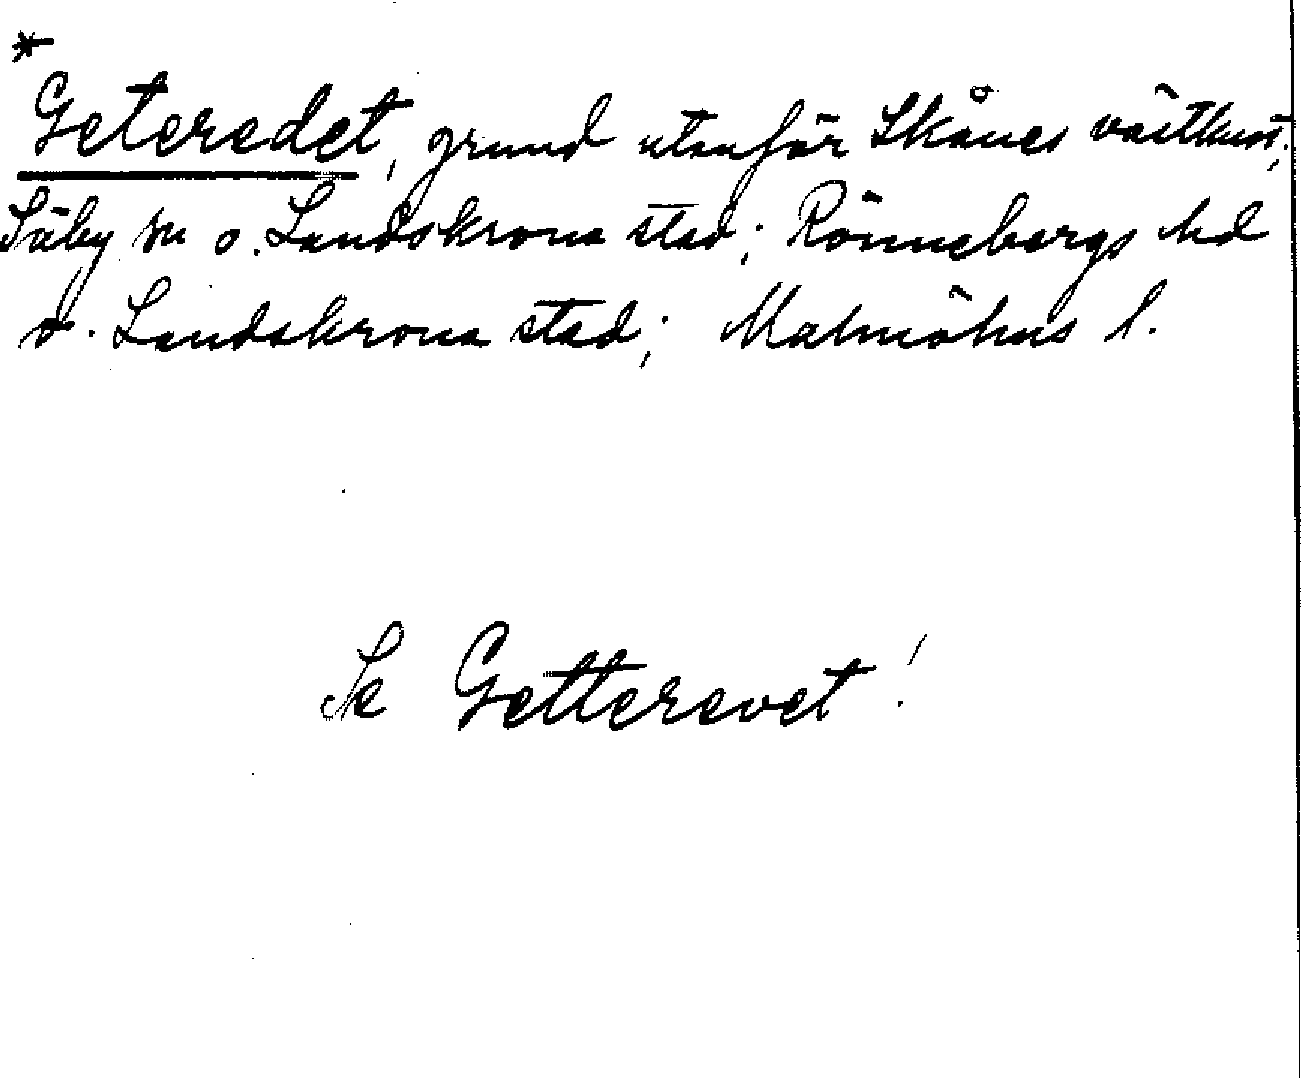 *
Geteredet, grund utanför Skånes västkust;
Säby sn o. Landskrona stad; Rönnebergs hd
o. Landskrona stad; Malmöhus l.
Se Getterevet!